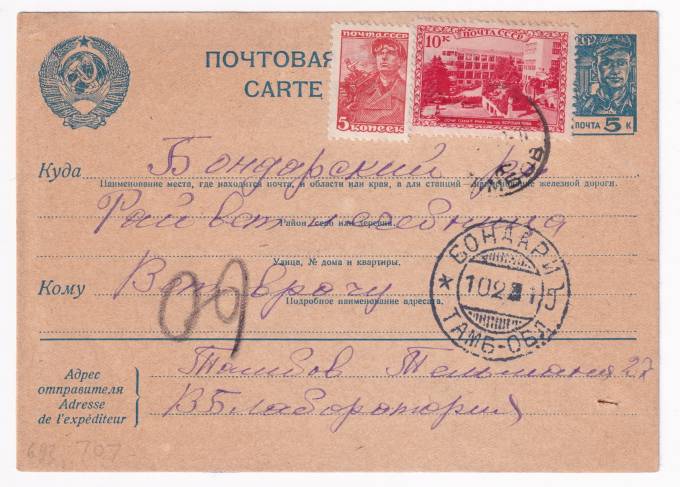 ПОЧТОВАЯ
CARTE
ПОЧТА СССР
5 КОПЕЕК
10К ПОЧТА СССР
ПОЧТА 5 К
Куда Бондарский р-н
Наименование места, где находится почта, и области или края, а для станций – наименование железной дороги.
Рай ветлечебница
Район, село или деревня.
Улица, № дома и квартиры.
Кому Вет врачу
Подробное наименование адресата.
09
БОНДАРИ
10 2 41
ТАМБ-ОБЛ.
Адрес отправителя
Adresse de l'expéditeur
Тамбов Тельмана 27
ВБ лаборатория
707